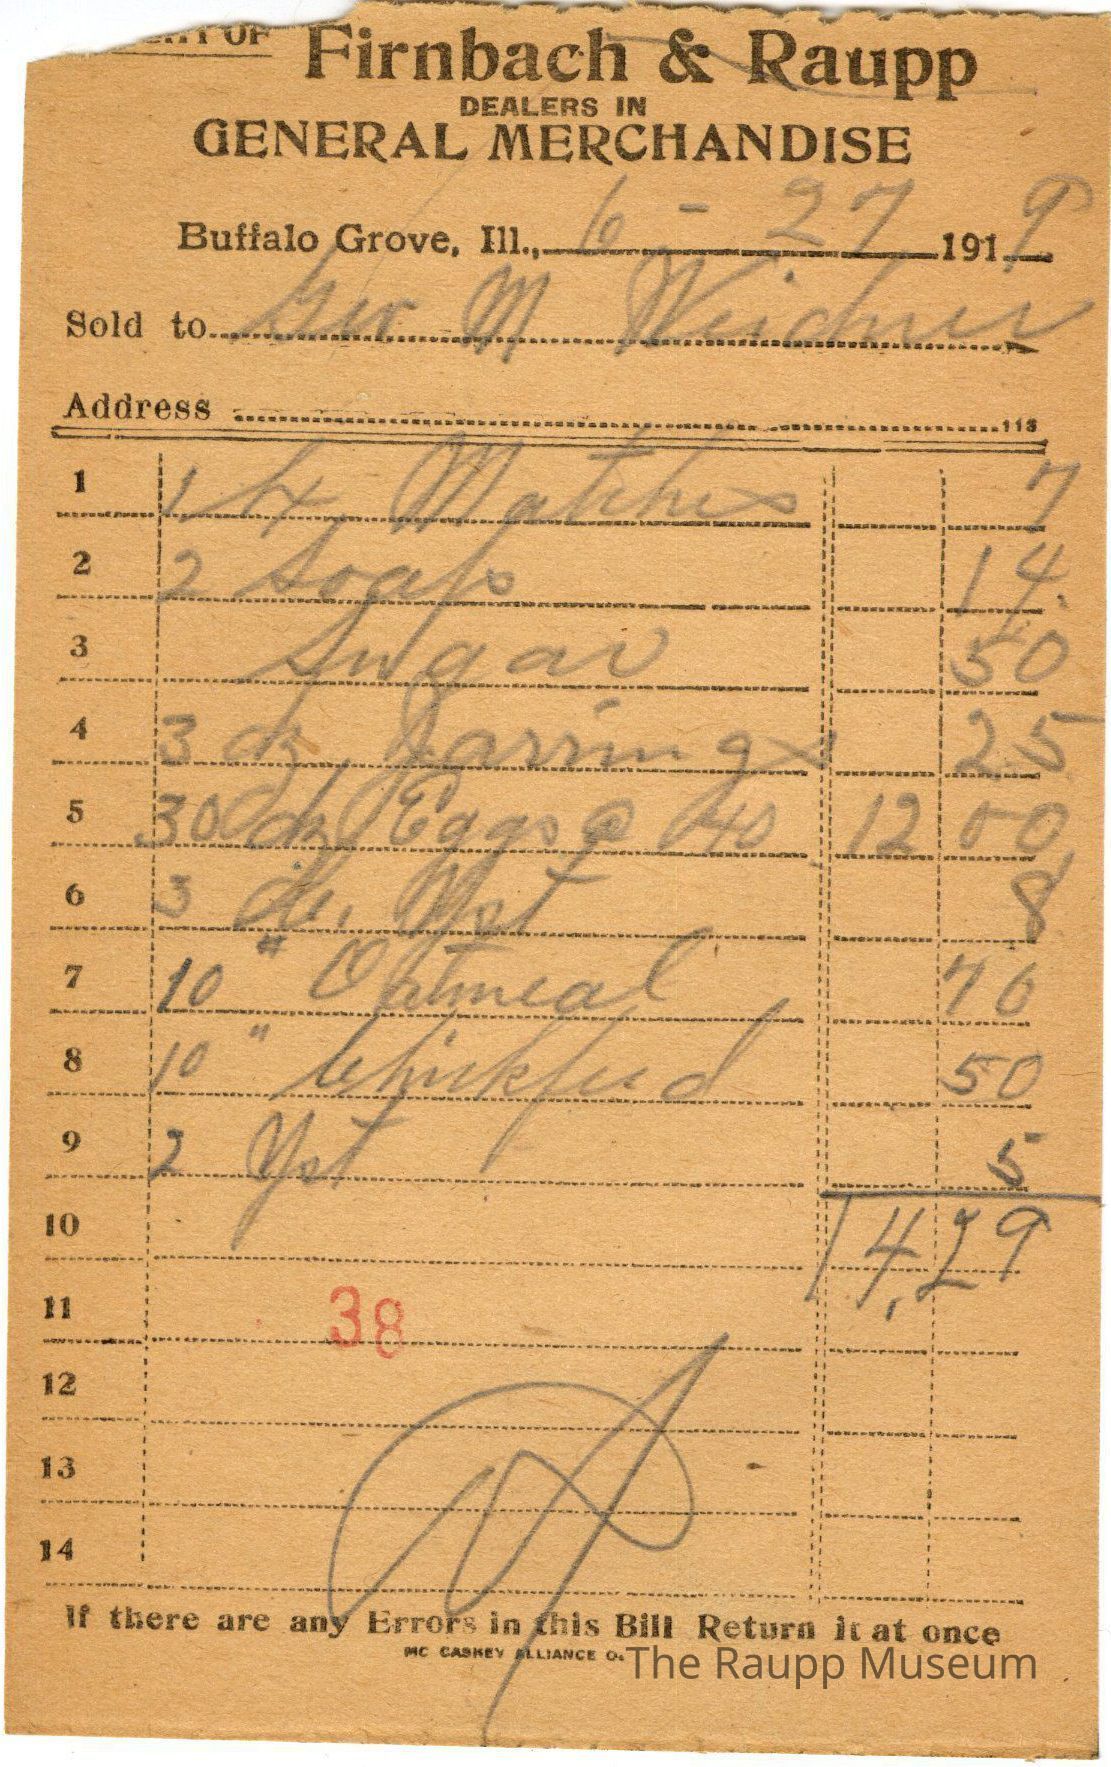 OF Firnbach & Raupp
DEALERS IN
GENERAL MERCHANDISE
Buffalo Grove, Ill., 6 - 27 1919
Sold to Geo M Weidner
Address 113
1 1 Matches 7
2 2 Soaps 14
3 Sugar 50
4 3 dz Jarrings 25
5 30 dz Eggs @ 40 12 00
6 3 Yst 8
7 10 " Oatmeal 70
8 10 " Chickfeed 50
9 2 Yst 5
10 14,29
11 38
12
13
14
If there are any Errors in this Bill Return it at once
MC CASKEY ALLIANCE O.
The Raupp Museum